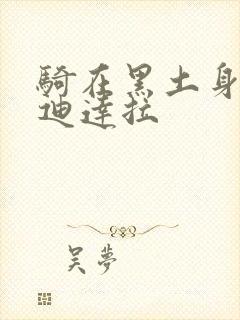 騎在黑土身
迪達拉
吴夢